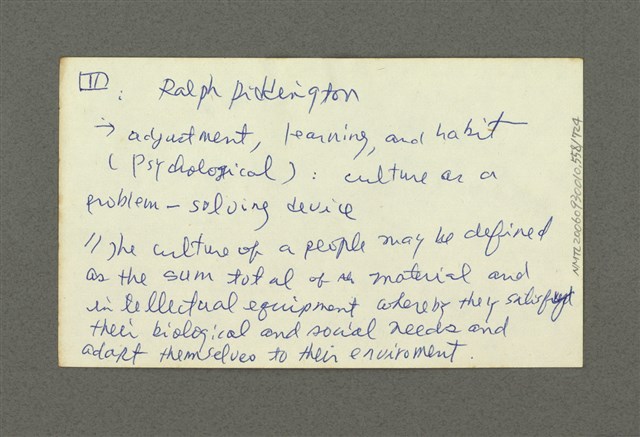 II : Ralph Piddington
→ adjustment, learning, and habit
(Psychological) : culture as a
problem - solving device
// The culture of a people may be defined
as the sum total of the material and
intellectual equipment whereby they satisfy
their biological and social needs and
adapt themselves to their enviroment.